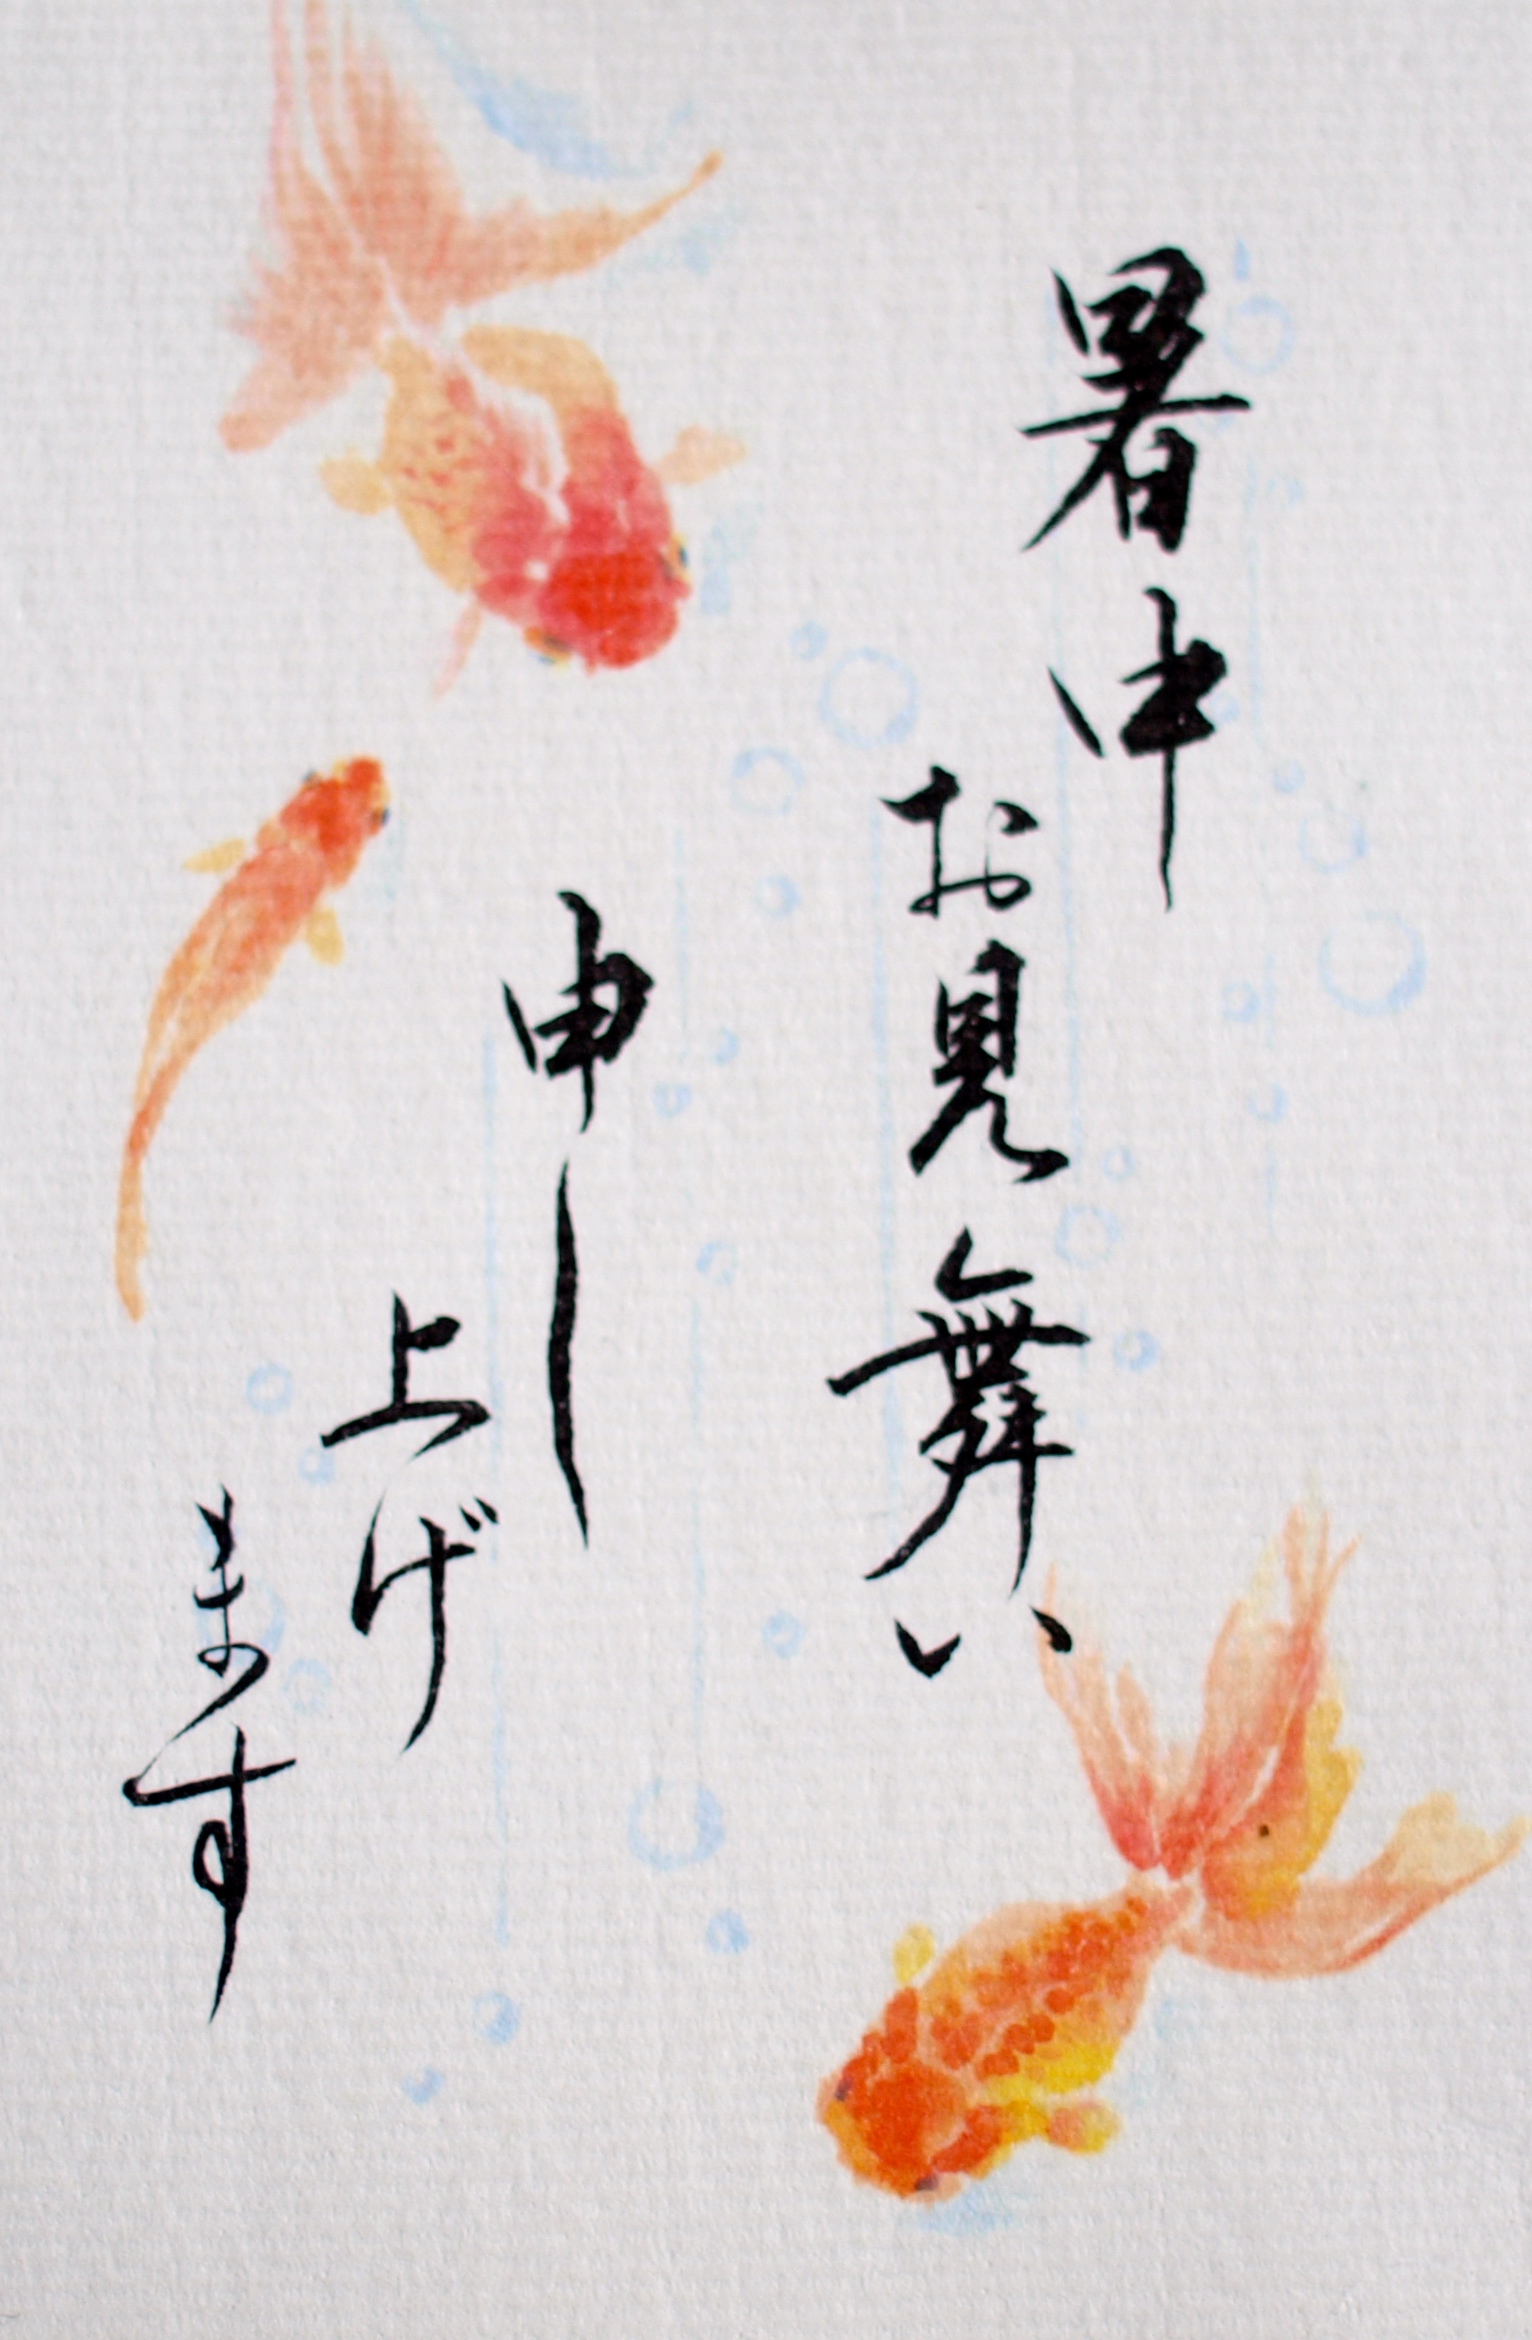 暑中
お見舞い
申し
上げ
ます